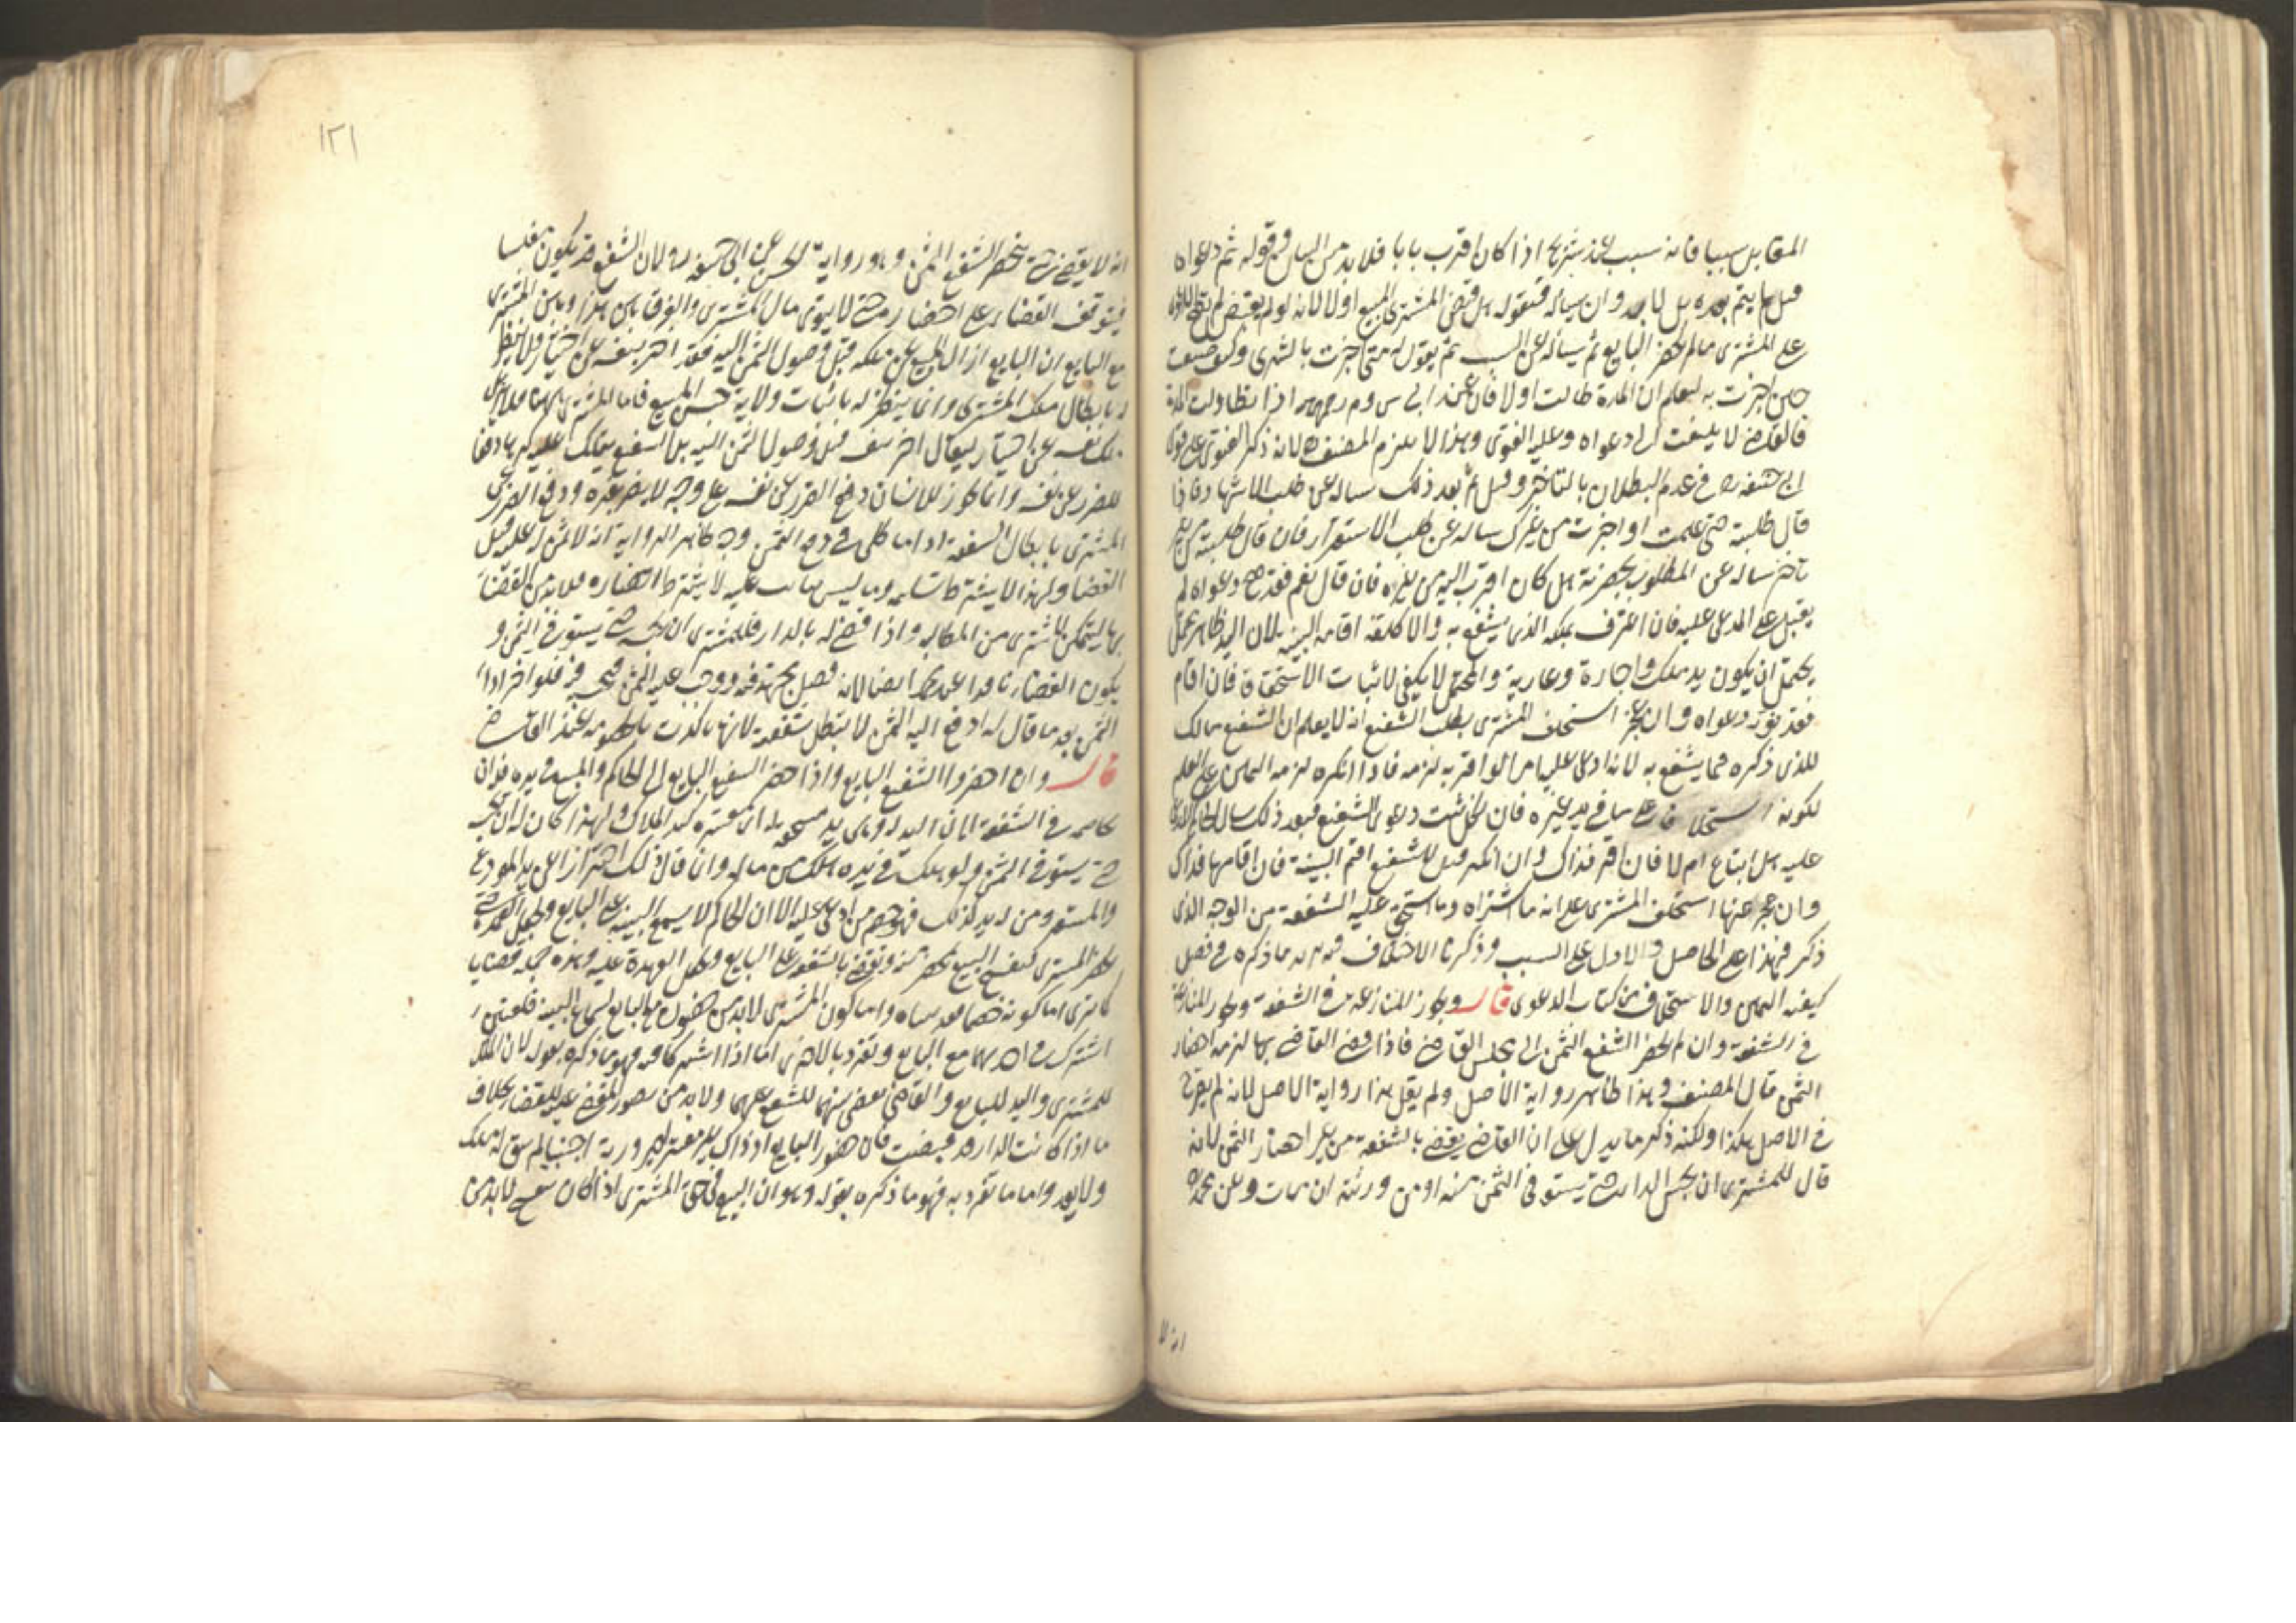 المقابل سببا فانه سبب عند شريح اذا كان اقرب بابا فلا بد من البيان وقوله ثم دعواه
قبل ما يتم بعده بل لا بد وان يسأله فنقول هل قبض المشتري المبيع اولا لانه لو لم يقبض لم تصح الدعوى
على المشتري ما لم يحضر البايع ثم يسأله عن السبب ثم يقول له متى اخبرت بالشرى وكيف صنعت
حين اخبرت به ليعلم ان المدة طالت اولا فان عند ابي س وم رحمهما اذا تطاولت المدة
فالقاضي لا يلتفت الى دعواه وعليه الفتوى وهذا لا يلزم المصنف لانه ذكر الفتوى على قول
ابي حنيفة ره في عدم البطلان بالتاخير وقيل ثم بعد ذلك يساله عن طلب الاشهاد فاذا
قال طلبته حين علمت او اخبرت من غير ساله عن طلب الاستقرار فان قال طلبته من غير
تاخير ساله عن المطلوب بحضرته هل كان اقرب اليه من غيره فان قال نعم فقد صح دعواه ثم
يقبل على المدعى عليه فان اعترف بملكه الذي يشفع به والا كلفه اقامة البينة لان اليد ظاهر محتمل
يحتمل ان يكون يد ملك واجارة وعارية والمحتمل لا يكفي لاثبات الاستحقاق فان اقام
فقد نور دعواه وان عجز استحلف المشتري بطلب الشفيع انه لا يعلم ان الشفيع مالك
للذي ذكره مما يشفع به لانه ادعى عليه امرا لو اقر به لزمه فاذا انكره لزمه اليمين على العلم
لكونه استحلافا على ما في يد غيره فان نكل ثبت دعوى الشفيع فبعد ذلك سال الحاكم المدعى
عليه هل ابتاع ام لا فان اقر فذاك وان انكر قيل للشفيع اقم البينة فان اقامها فذاك
وان عجز عنها استحلف المشتري على انه ما اشتراه وما استحق عليه الشفعة من الوجه الذي
ذكر فهذا على الحاصل والاول على السبب وذكرنا الاختلاف فيه بما ذكره في فصل
كيفية اليمين والاستحلاف من كتاب الدعوى قال ويجوز المنازعة في الشفعة ويجوز المنازعة
في الشفعة وان لم يحضر الشفيع الثمن الى مجلس القاضي فاذا قضى القاضي بها لزمه احضار
الثمن قال المصنف وهذا ظاهر رواية الاصل ولم يقل هذا رواية الاصل لانه لم يصرح
في الاصل هكذا ولكنه ذكر ما يدل على ان القاضي يقضي بالشفعة من غير احضار الثمن لانه
قال للمشتري ان يحبس الدار حتى يستوفى الثمن منه او من ورثته ان مات وعن محمد ره
انه لا
١٢١
انه لا يقضي حتى يحضر الشفيع الثمن وهو رواية الحسن عن ابي حنيفة ره لان الشفيع قد يكون مفلسا
فيتوقف القضاء على احضاره حتى لا يتوى مال المشتري والفرق بين هذا وبين المشترى
مع البايع ان البايع ازال المبيع عن ملكه قبل وصول الثمن اليه فقد اضر بنفسه عن اختيار فلا ينظر
له بابطال ملك المشتري وانما ينظر له باثبات ولاية حبس المبيع فاما المشتري ههنا فلا يزيل
ملك نفسه عن اختيار ليقال اضر بنفسه قبل وصول الثمن اليه بل الشفيع يتملك عليه كرها دفعا
للضرر عن نفسه وانما يجوز للانسان دفع الضرر عن نفسه على وجه لا يضر بغيره ودفع الضرر عن
المشتري بابطال الشفعة اذا ما طل في دفع الثمن وجه ظاهر الرواية انه لا ثمن له عليه قبل
القضا ولهذا لا يشترط تسليمه وما ليس بثابت عليه لا يشترط احضاره فلا بد من القضاء
بها ليتمكن المشتري من المطالبة واذا قضى له بالدار فللمشتري ان يحبسه حتى يستوفي الثمن و
يكون القضاء نافذا عند محمد ايضا لانه فصل مجتهد فيه ووجب عليه الثمن فيحبس فيه فلو اخر اداء
الثمن بعد ما قال له ادفع اليه الثمن لا يبطل شفعته لانها تاكدت بالخصومة عند القاضي
قال وان احضروا الشفيع البايع واذا احضر الشفيع البايع الى الحاكم والمبيع في يده فله ان
يخاصمه في الشفعة لان اليد له وهي يد مستحقة اي معتبرة كيد الملاك ولهذا كان له ان يحبسه
حتى يستوفي الثمن ولو هلك في يده هلك من ماله وانما قال ذلك احترازا عن يد المودع
والمستعير ومن له يد كذلك فهو خصم لمن ادعى عليه الا ان الحاكم لا يسمع البينة على البايع ويجعل العهدة حتى
يحضر المشتري فيفسخ البيع بمحضر منه ويقضي بالشفعة على البايع ويجعل العهدة عليه وهذه جملة قضايا
كما ترى اما كونه خصما فقد بيناه واما كون المشتري لا بد من حضوره مع البايع لسماع البينة فلمعنيين
اشترك في احدهما مع البايع وتفرد بالاخرى اما اذا اشتركا فيه فهو ما ذكره بقوله لان الملك
للمشتري واليد للبايع والقاضي يقضي بهما للشفيع عليهما ولا بد من حضور المقضي عليه للقضاء بخلاف
ما اذا كانت الدار قد قبضت فان حضور البايع اذ ذاك غير معتبر لصيرورته اجنبيا لم يبق له ملك
ولا يد واما ما تفرد به فهو ما ذكره بقوله وهو ان البيع في حق المشتري اذا كان ينفسخ لا بد من